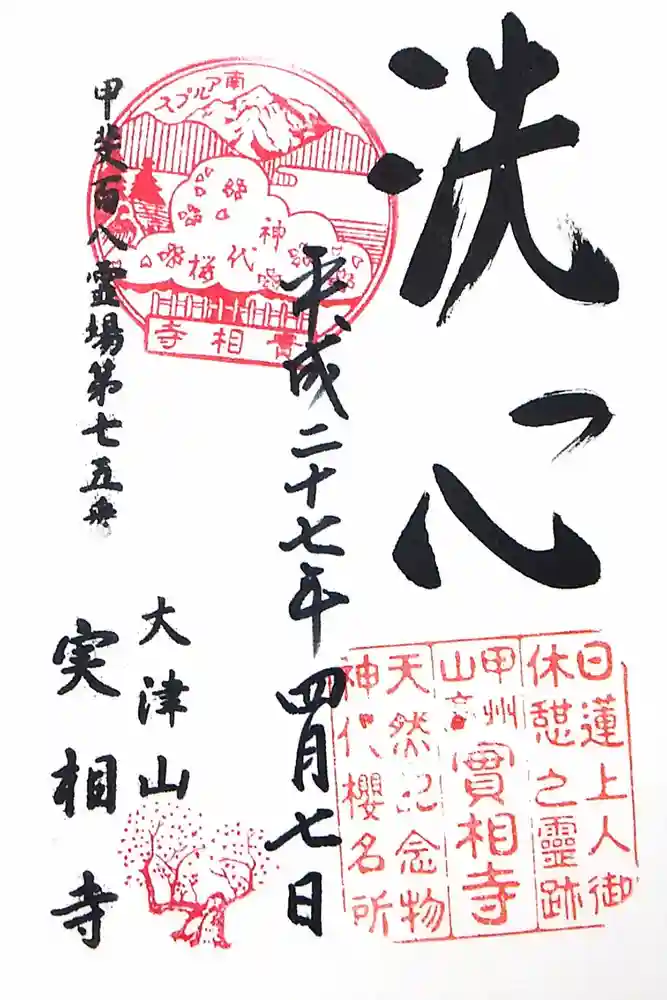 洗心
日蓮上人御
休憩之霊跡
甲州
山高
實相寺
天然記念物
神代櫻名所
平成二十七年 四月七日
南アルプス
神代桜
實相寺
大津山
実相寺
甲斐百八霊場第七五番